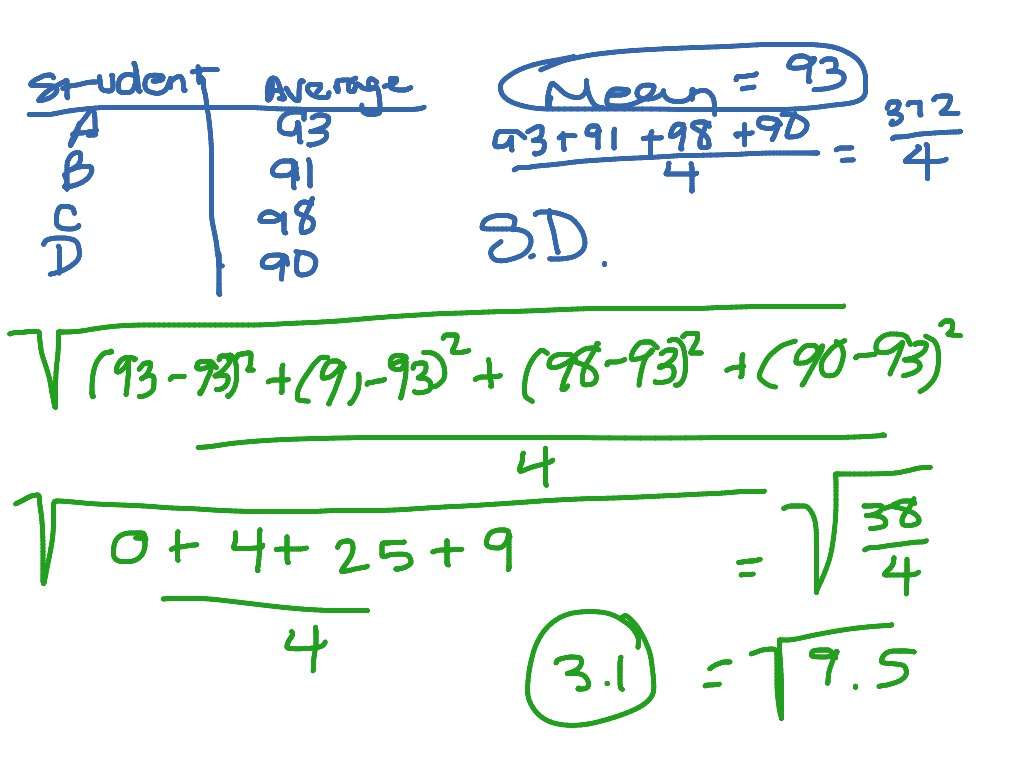 Student Average
A 93
B 91
C 98
D 90
Mean = 93
93 + 91 + 98 + 90 / 4 = 372 / 4
S.D.
√ (93 - 93)² + (91 - 93)² + (98 - 93)² + (90 - 93)² / 4
√ 0 + 4 + 25 + 9 / 4 = √ 38 / 4
3.1 = √ 9.5